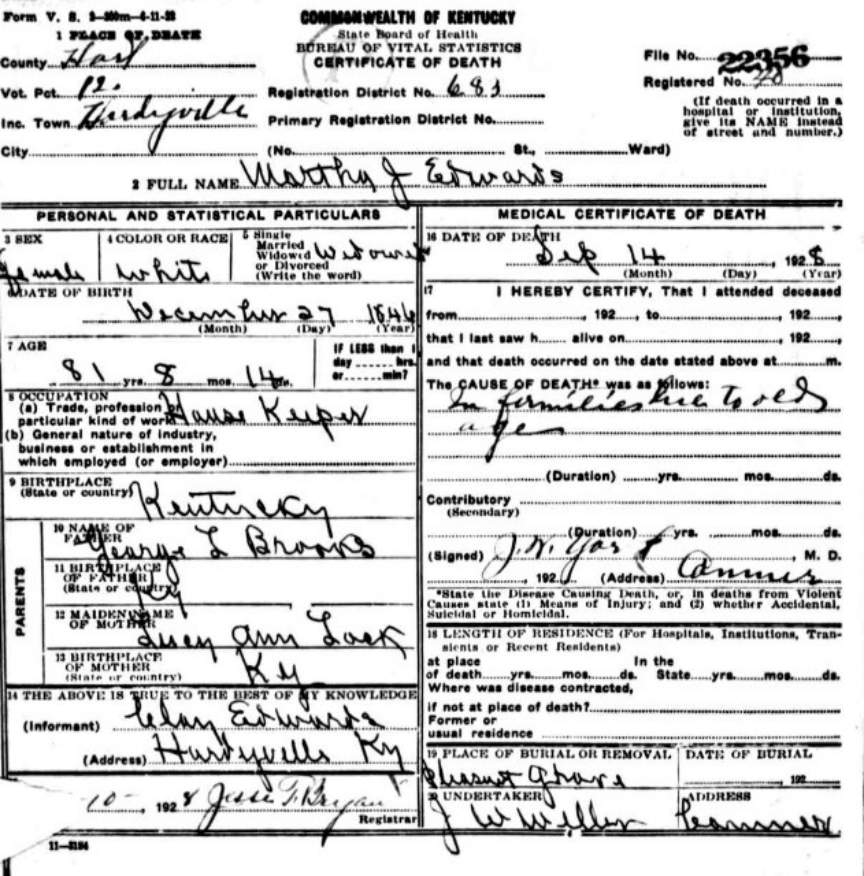 Form V. S. 2-300m-4-11-22
COMMONWEALTH OF KENTUCKY
State Board of Health
BUREAU OF VITAL STATISTICS
CERTIFICATE OF DEATH
1 PLACE OF DEATH
County Hart
Vot. Pct. 12.
Inc. Town Hardyville
City
Registration District No. 683
Primary Registration District No.
(No. St., Ward)
File No. 22356
Registered No.
(If death occurred in a
hospital or institution,
give its NAME instead
of street and number.)
2 FULL NAME Martha J Edwards
PERSONAL AND STATISTICAL PARTICULARS
3 SEX
Female
4 COLOR OR RACE
White
5 Single
Married
Widowed
or Divorced
(Write the word)
Widowed
6 DATE OF BIRTH
December 27 1846
(Month) (Day) (Year)
7 AGE
81 yrs. 8 mos. 14 ds.
IF LESS than 1
day hrs.
or min?
8 OCCUPATION
(a) Trade, profession or
particular kind of work House Keeper
(b) General nature of industry,
business or establishment in
which employed (or employer)
9 BIRTHPLACE
(State or country) Kentucky
PARENTS
10 NAME OF
FATHER George L Brooks
11 BIRTHPLACE
OF FATHER
(State or country) Ky
12 MAIDEN NAME
OF MOTHER Lucy Ann Lock
13 BIRTHPLACE
OF MOTHER
(State or country) Ky
14 THE ABOVE IS TRUE TO THE BEST OF MY KNOWLEDGE
(Informant) Clay Edwards
(Address) Hardyville Ky
10- , 1928 Jesse F. Bryan
Registrar
11-3184
MEDICAL CERTIFICATE OF DEATH
16 DATE OF DEATH
Sep 14 1928
(Month) (Day) (Year)
17 I HEREBY CERTIFY, That I attended deceased
from , 192 , to , 192 ,
that I last saw h alive on , 192 ,
and that death occurred on the date stated above at m.
The CAUSE OF DEATH* was as follows:
Infirmities due to old
age
(Duration) yrs. mos. ds.
Contributory
(Secondary)
(Duration) yrs. mos. ds.
(Signed) , M. D.
, 192 (Address) Canmer
*State the Disease Causing Death, or, in deaths from Violent
Causes state (1) Means of Injury; and (2) whether Accidental,
Suicidal or Homicidal.
18 LENGTH OF RESIDENCE (For Hospitals, Institutions, Tran-
sients or Recent Residents)
at place In the
of death yrs. mos. ds. State yrs. mos. ds.
Where was disease contracted,
if not at place of death?
Former or
usual residence
19 PLACE OF BURIAL OR REMOVAL
Pleasant Grove
DATE OF BURIAL
192
20 UNDERTAKER
J W Miller
ADDRESS
Canmer